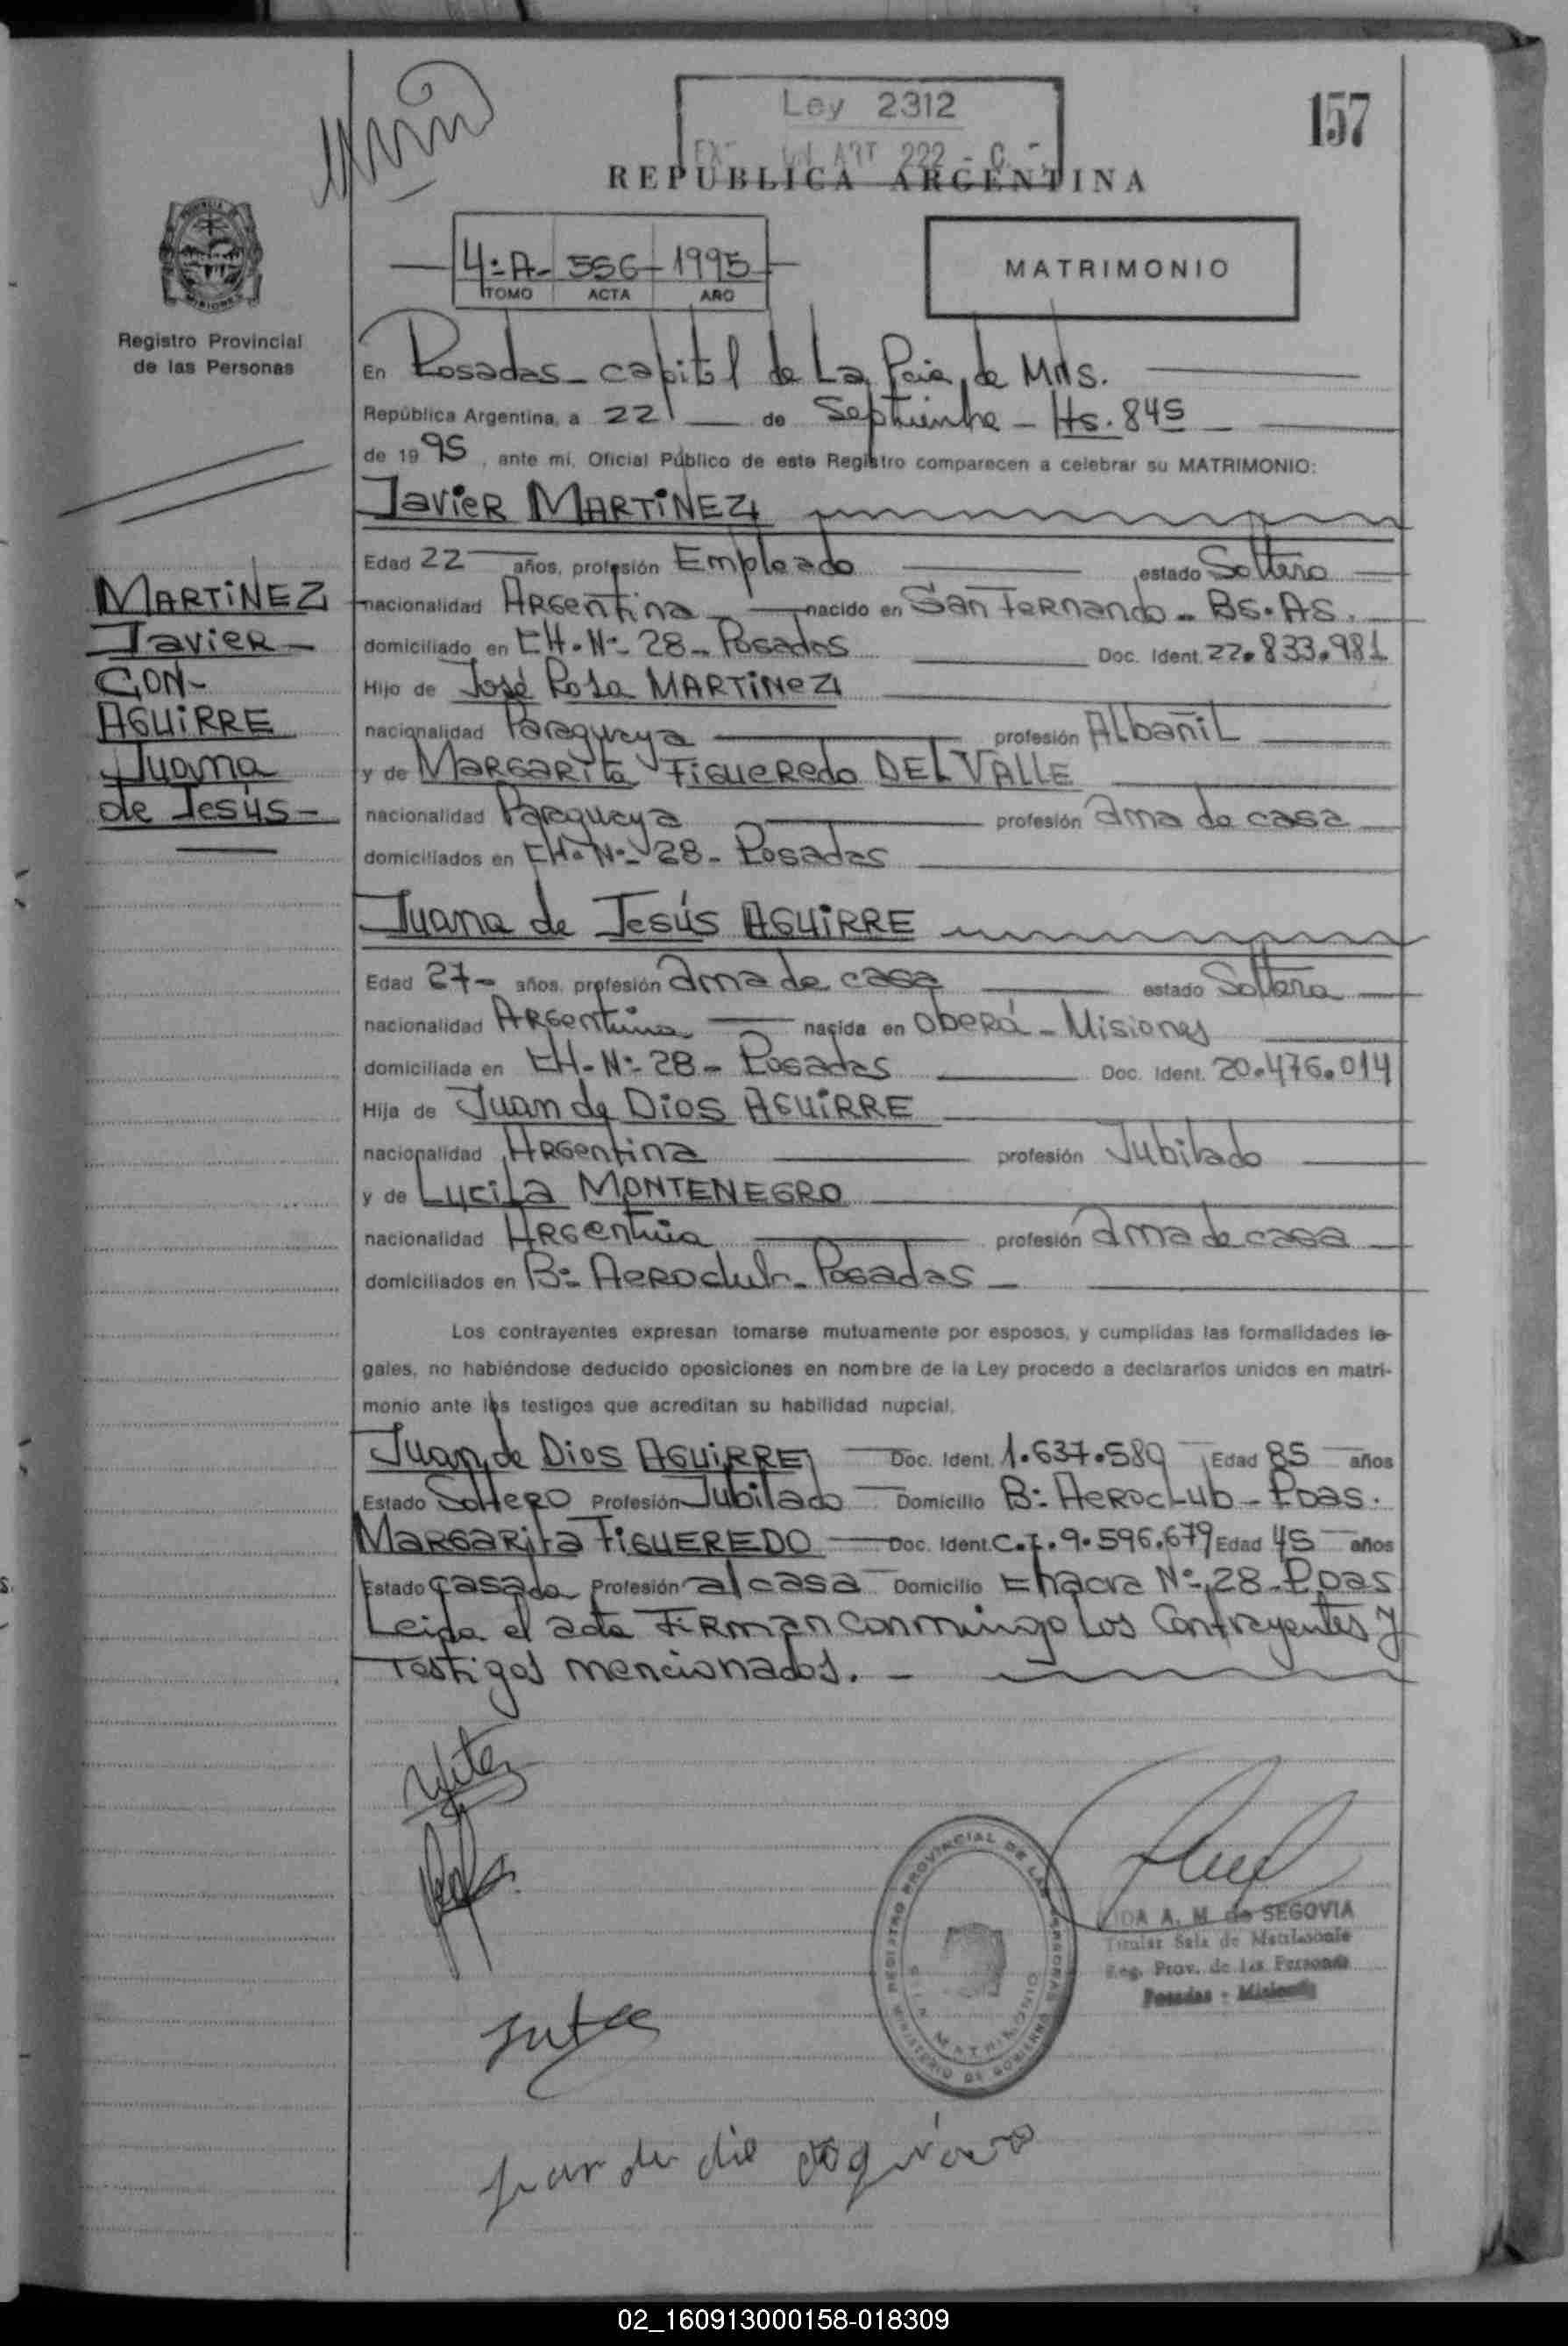 Ley 2312
ART 222 - C.
157
REPUBLICA ARGENTINA
4º A- 556 1995
TOMO ACTA AÑO
MATRIMONIO
Registro Provincial
de las Personas
En Posadas - capital de La Pcia, de Mns.
República Argentina, a 22 de Septiembre - Hs. 845
de 1995, ante mí, Oficial Público de este Registro comparecen a celebrar su MATRIMONIO:
Javier MARTINEZ
Edad 22 años, profesión Empleado estado Soltero
nacionalidad Argentina nacido en San Fernando - Bs. As.
domiciliado en CH. Nº 28 - Posadas Doc. Ident. 22.833.981
Hijo de José Rosa MARTINEZ
nacionalidad Paraguaya profesión Albañil
y de Margarita Figueredo DEL VALLE
nacionalidad Paraguaya profesión ama de casa
domiciliados en CH. Nº 28 - Posadas
MARTINEZ
Javier -
CON -
AGUIRRE
Juana
de Jesús -
Juana de Jesús AGUIRRE
Edad 27 - años, profesión ama de casa estado Soltera
nacionalidad Argentina nacida en Oberá - Misiones
domiciliada en CH. Nº 28 - Posadas Doc. Ident. 20.476.014
Hija de Juan de Dios AGUIRRE
nacionalidad Argentina profesión Jubilado
y de Lucila MONTENEGRO
nacionalidad Argentina profesión ama de casa
domiciliados en Bº Aeroclub - Posadas -
Los contrayentes expresan tomarse mutuamente por esposos, y cumplidas las formalidades le-
gales, no habiéndose deducido oposiciones en nombre de la Ley procedo a declararlos unidos en matri-
monio ante los testigos que acreditan su habilidad nupcial.
Juan de Dios AGUIRRE Doc. Ident. 1.637.589 Edad 85 años
Estado Soltero Profesión Jubilado Domicilio Bº Aeroclub - Pdas.
MARGARITA FIGUEREDO Doc. Ident. C.I. 9.596.679 Edad 45 años
Estado casada Profesión a/casa Domicilio Chacra Nº 28 - Pdas
Leida el acta Firman conmigo Los Contrayentes y
Testigos mencionados. -
REGISTRO PROVINCIAL DE LAS PERSONAS
MATRIMONIO
MINISTERIO DE GOBIERNO
A. M. de SEGOVIA
Titular Sala de Matrimonio
Reg. Prov. de las Personas
Posadas - Misiones
juan de dio
02_160913000158-018309